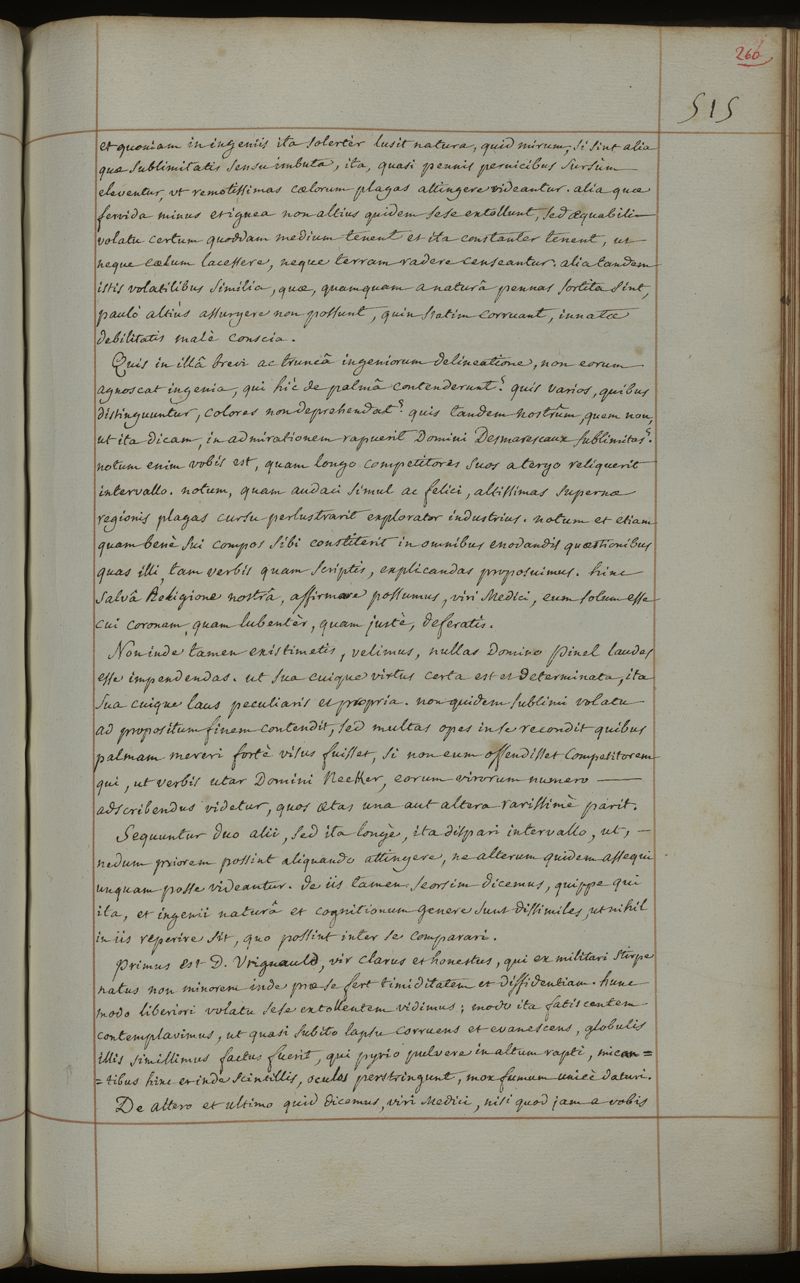 260
515
et quoniam in ingeniis ita solertèr lusit natura, quid mirum, si sint alia
quæ sublimitatis sensu imbuta, ita, quasi pennis pernicibus sursùm
eleventur, ut remotissimas cælorum plagas attingere videantur. alia quæ
fervida minus et ignea non altius quidem sese extollunt, sed æquabili
volatu certum quoddam medium tenent et ita constanter tenent, ut
neque cælum lacessere, neque terram radere censeantur. alia tandem
istis volatilibus similia, quæ, quamquam a naturâ pennas sortita sint,
pauló altiùs assurgere non possunt, quin statim corruant, innatæ
debilitatis malè conscia.
Quis in illâ brevi ac truncâ ingeniorum delineatione, non eorum
agnoscat ingenia, qui hîc de palmâ contenderunt? quis varios, quibus
distinguuntur, colores non deprehendat? quis tandem nostrûm, quem non,
ut ita dicam, in admirationem rapuerit Domini Desmarescaux sublimitas?
notum enim vobis est, quam longo competitores suos a tergo reliquerit
intervallo. notum, quam audaci simul ac felici, altissimas supernæ
regionis plagas cursu perlustrarit explorator industrius. notum et etiam
quam benè sui compos sibi constiterit in omnibus enodandis quæstionibus
quas illi, tam verbis quam scriptis, explicandas proposuimus. hinc
salvâ Religione nostrâ, affirmare possumus, viri Medici, eum solum esse
cui coronam, quam lubentèr, quam justè, deferatis.
Non inde tamen existimetis, velimus, nullas Domino Pinel laudes
esse impendendas. ut sua cuique virtus certa est et determinata, ita
sua cuique laus peculiaris et propria. non quidem sublimi volatu
ad propositum finem contendit, sed multas opes in se recondit quibus
palmam mereri fortè visus fuisset, si non eum offendisset Competitorem
qui, ut verbis utar Domini Necker, eorum virorum numero —
adscribendus videtur, quos ætas una aut altera rarissimè parit.
Sequuntur duo alii, sed ita longè, ita dispari intervallo, ut, —
nedum priorem possint aliquando attingere, ne alterum quidem assequi
unquam posse videantur. de iis tamen seorsim dicemus, quippe qui
ita, et ingenii naturâ et cognitionum genere sunt dissimiles, ut nihil
in iis reperire sit, quo possint inter se comparari.
Primus est D. Vrignauld, vir clarus et honestus, qui ex militari stirpe
natus non minorem inde præ se fert timiditatem et diffidentiam. hunc
modo liberiori volatu sese extollentem vidimus; modo ita fatiscentem
contemplavimus, ut quasi subito lapsu corruens et evanescens, globulis
illis simillimus factus fuerit, qui pyrio pulvere in altum rapti, mican=
=tibus hinc et inde scintillis, oculos perstringunt, mox fumum unicè daturi.
De altero et ultimo quid dicemus, viri Medici, nisi quod jam a vobis